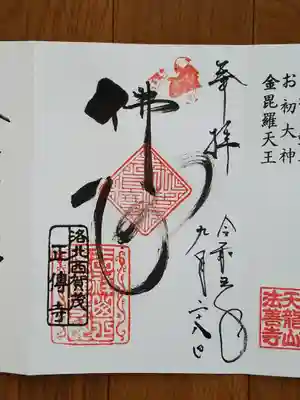 お初大神
金毘羅天王
天龍山
法善寺
奉拝
令和五年
九月二十八日
佛心
洛北西賀茂
正傳寺